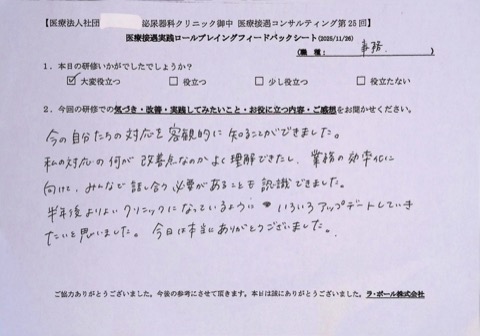 【医療法人社団 泌尿器科クリニック御中 医療接遇コンサルティング第25回】
医療接遇実践ロールプレイングフィードバックシート(2025/11/26)
(職 種: 事務 )
1.本日の研修いかがでしたでしょうか?
☑大変役立つ □役立つ □少し役立つ □役立たない
2.今回の研修での気づき・改善・実践してみたいこと・お役に立つ内容・ご感想をお聞かせください。
今の自分たちの対応を客観的に知ることができました。
私の対応の何が改善点なのかよく理解できたし、業務の効率化に
向けて、みんなで話し合う必要があることも認識できました。
半年後よりよいクリニックになっているように いろいろアップデートしていき
たいと思いました。今日は本当にありがとうございました。
ご協力ありがとうございました。今後の参考にさせて頂きます。本日は誠にありがとうございました。ラ・ポール株式会社